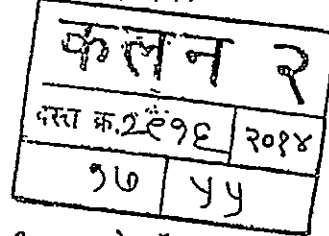 कलन २
दस्त क्र.२९१६ २०१४
१७ ५५